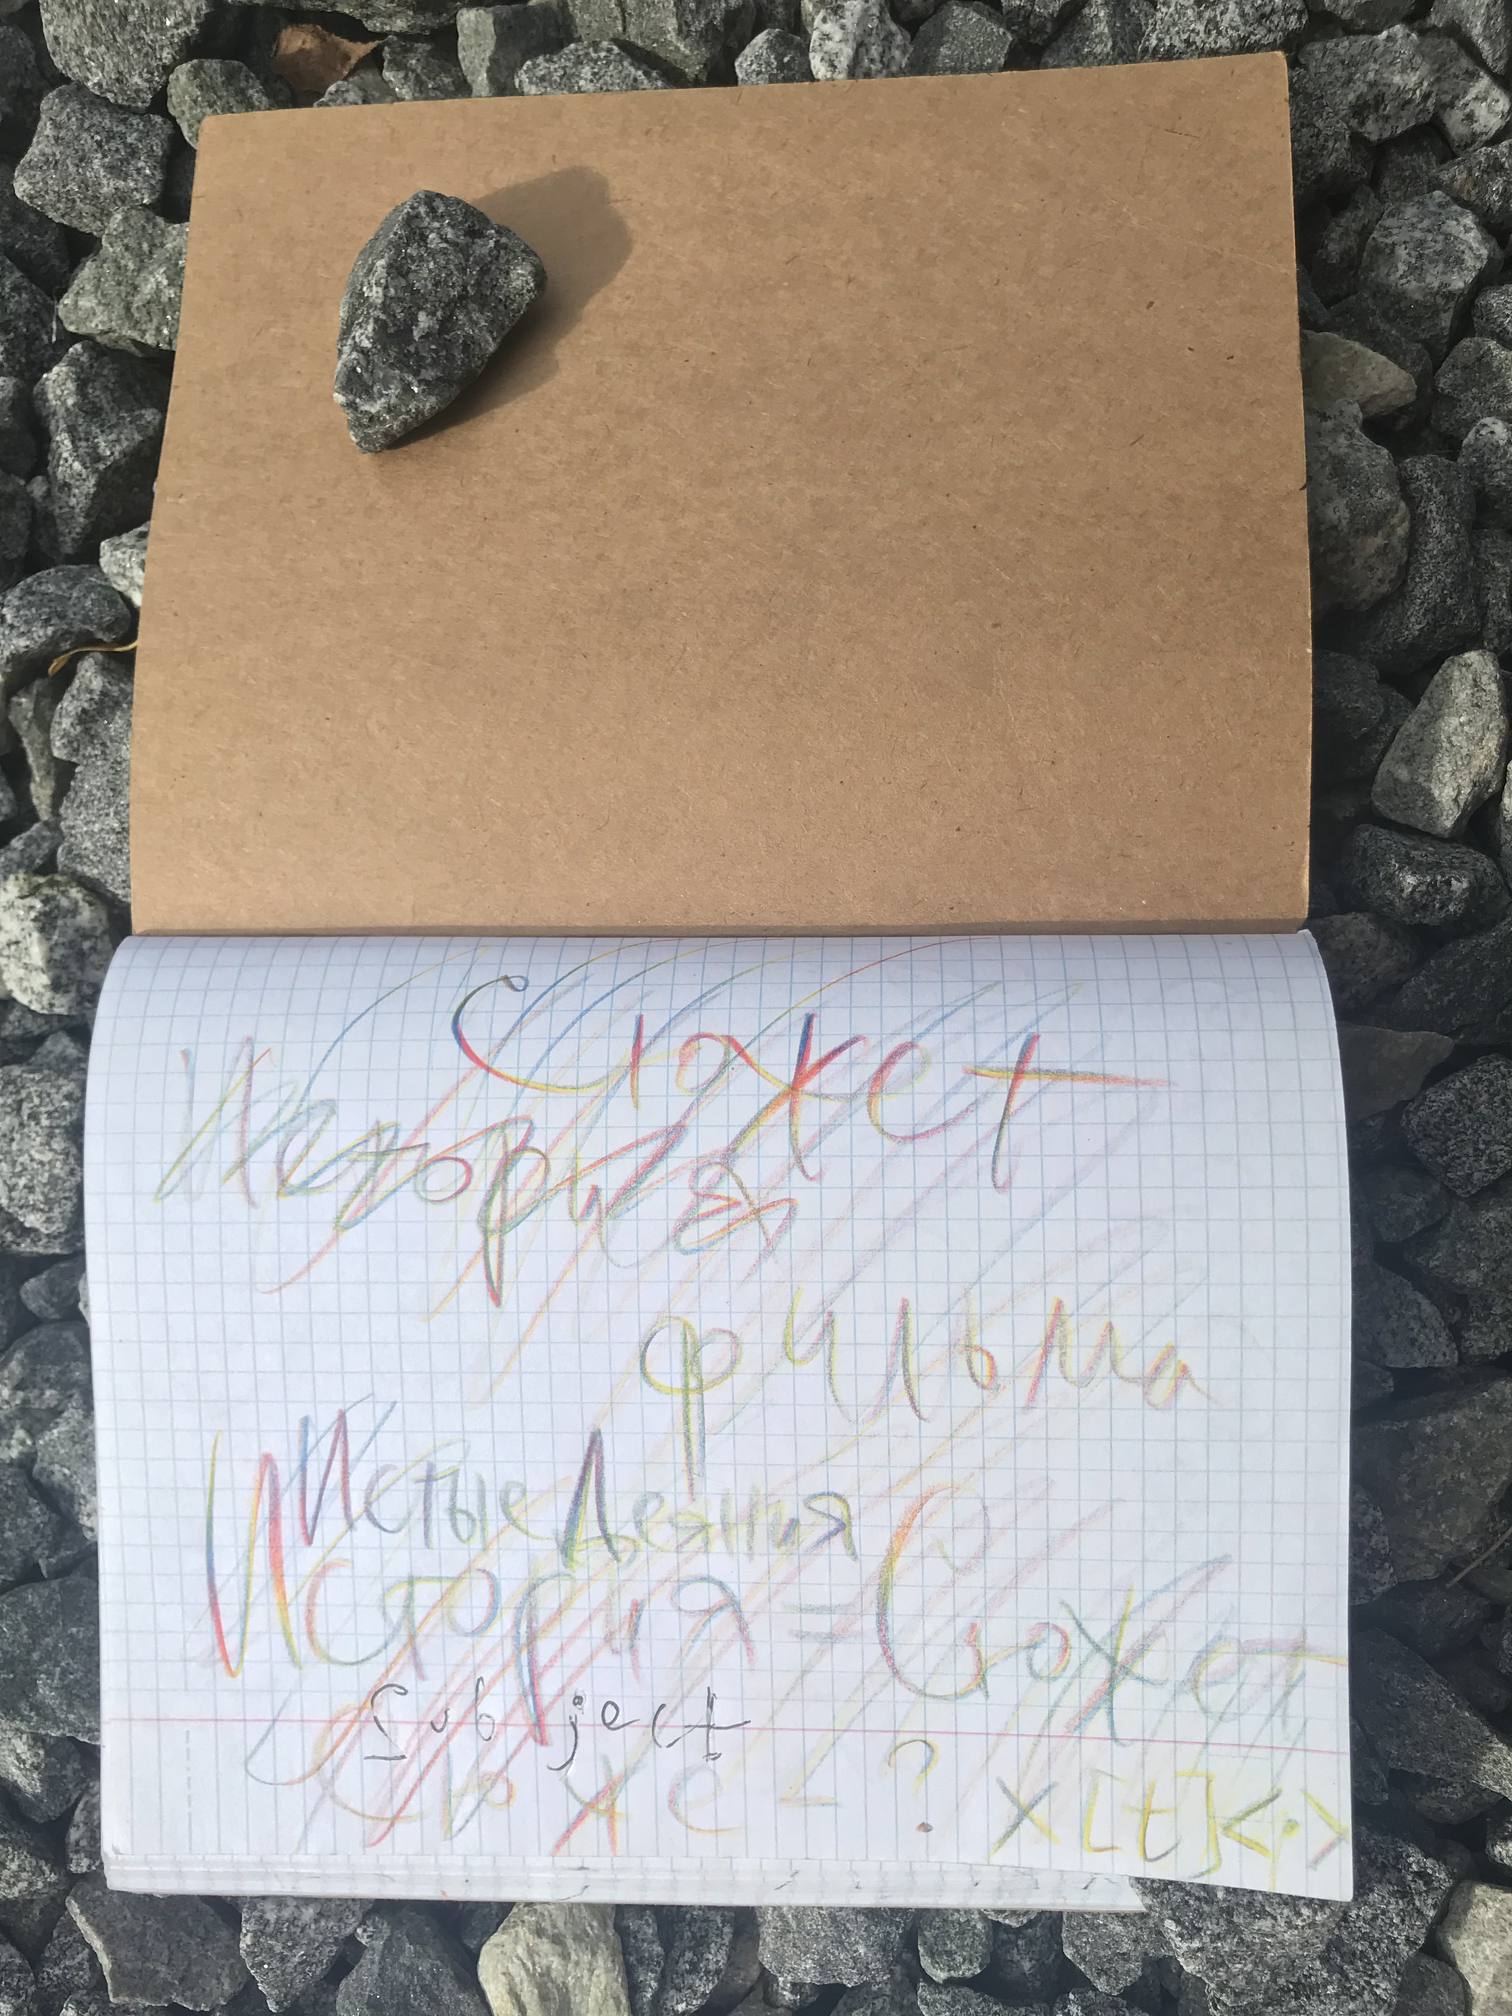 Сюжет
История
фильма
Истые Деяния
История = Сюжет
Subject
Сюже - ? x[t]<•>